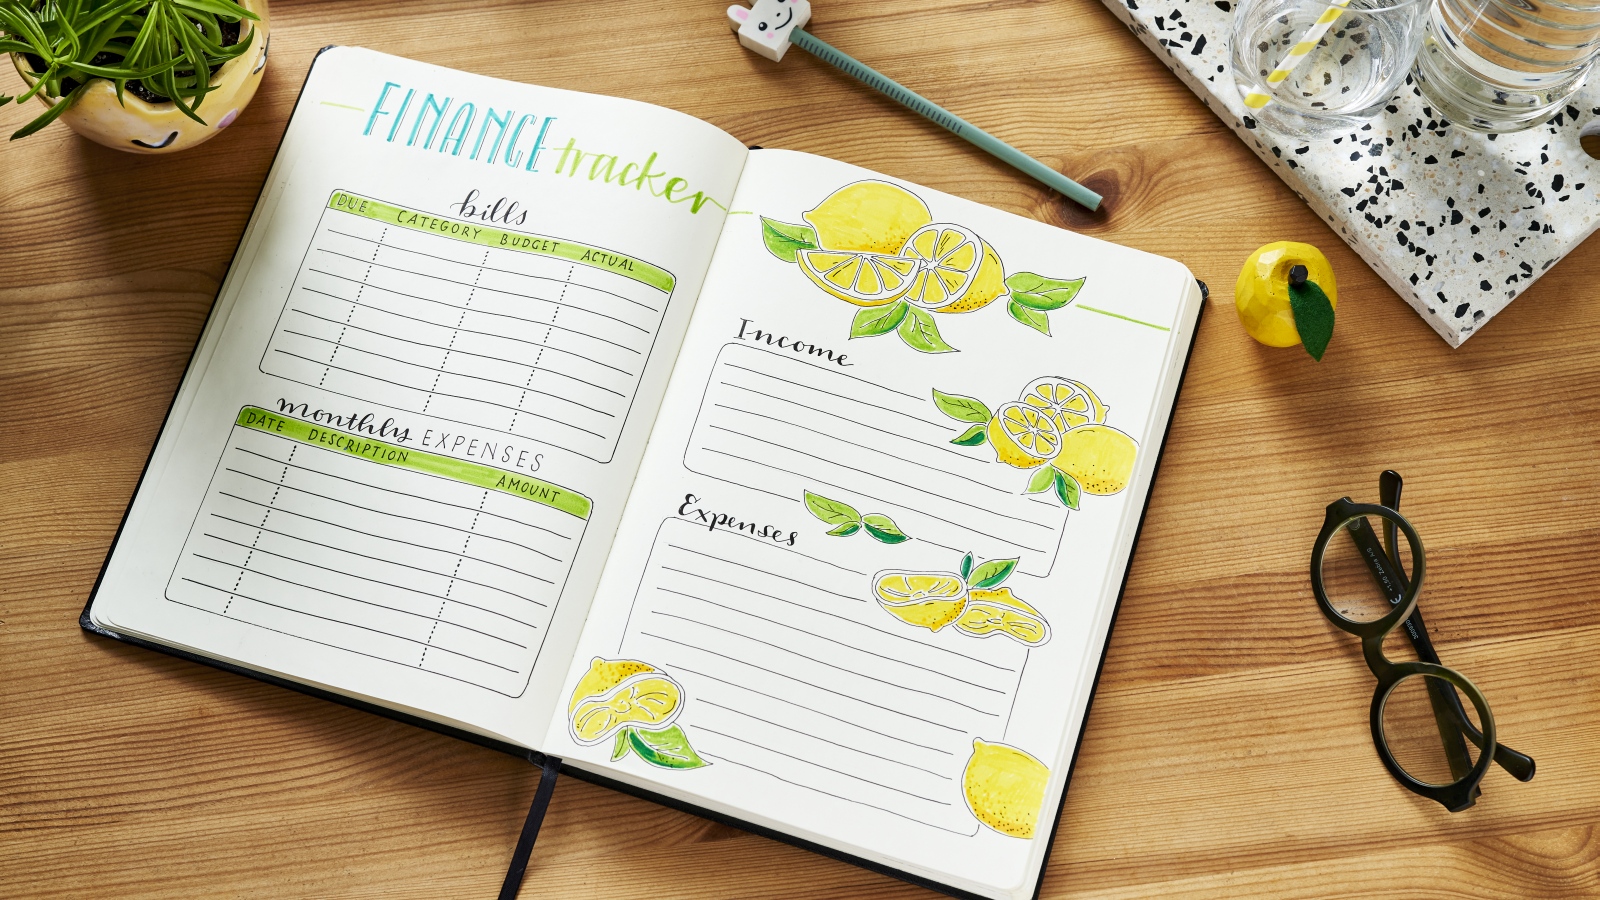 FINANCE tracker
bills
DUE CATEGORY BUDGET ACTUAL
monthly EXPENSES
DATE DESCRIPTION AMOUNT
Income
Expenses